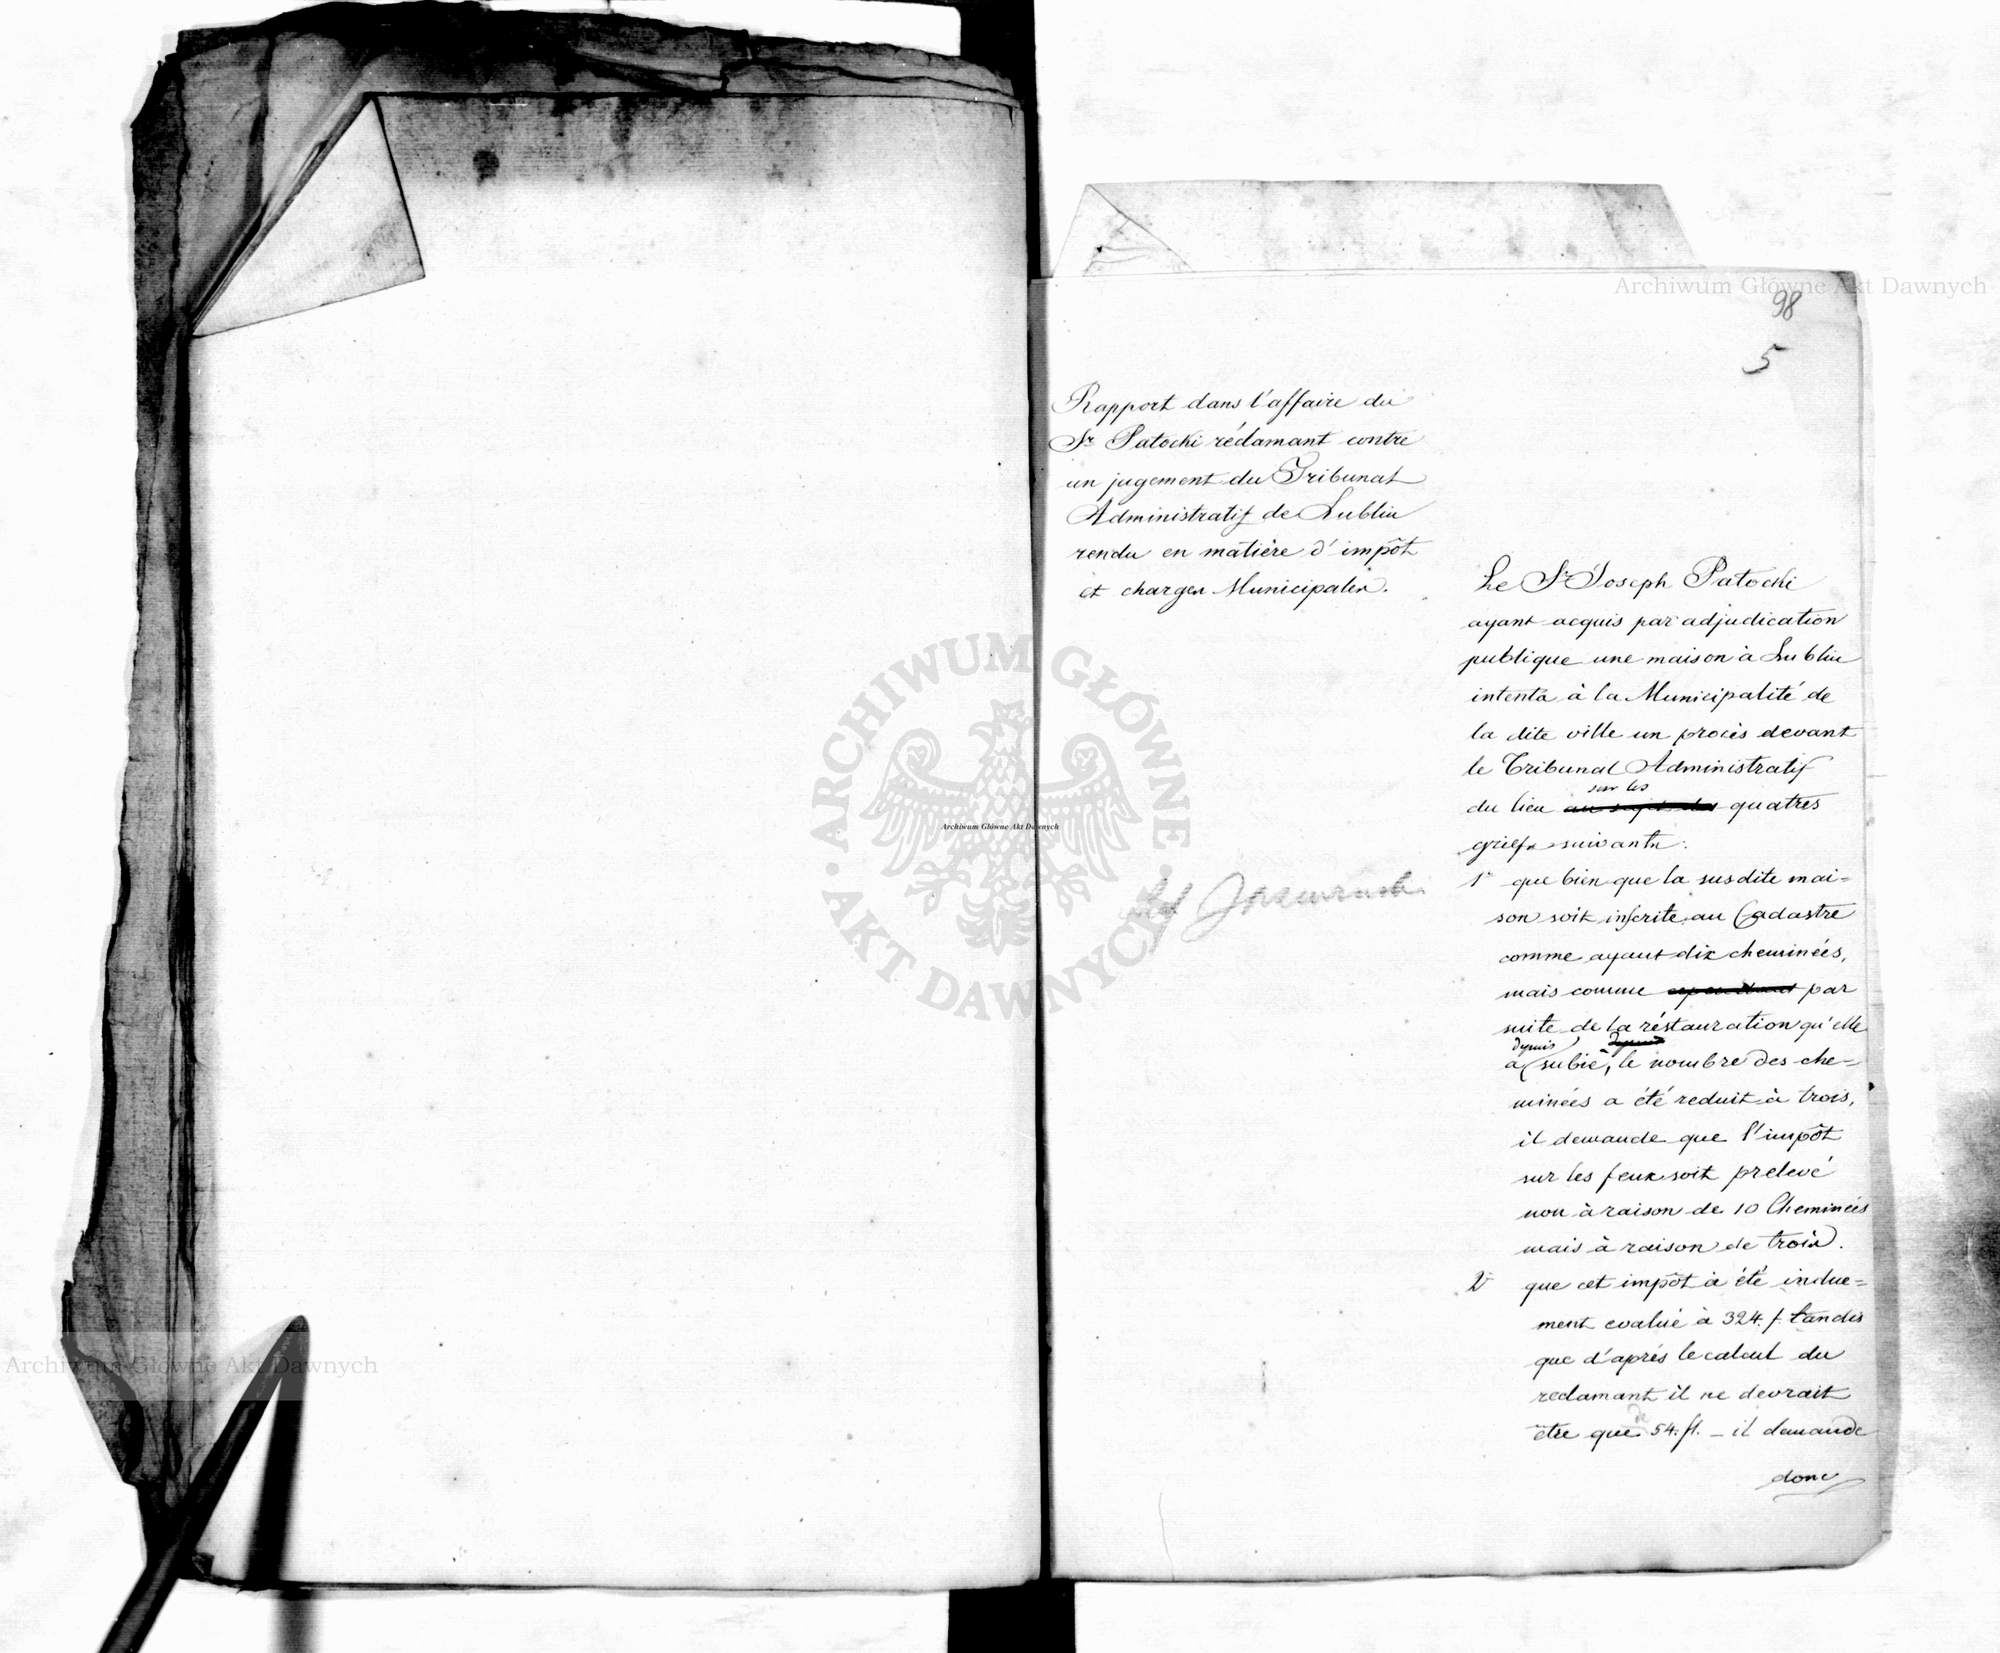 98
5
Rapport dans l'affaire du
Sr Patocki réclamant contre
un jugement du Tribunal
Administratif de Lublin
rendu en matière d'impôt
et charges Municipales.
Le Sr Joseph Patocki
ayant acquis par adjudication
publique une maison à Lublin
intenta à la Municipalité de
la dite ville un procès devant
le Tribunal Administratif
sur les
du lieu au sujet des quatres
griefs suivants:
1º que bien que la susdite mai=
son soit inscrite au Cadastre
comme ayant dix cheminées,
mais comme cependant par
suite de la réstauration qu'elle
depuis depuis
a subie, le nombre des che=
minées a été reduit à trois,
il demande que l'impôt
sur les feux soit prelevé
non à raison de 10 Cheminées
mais à raison de trois.
2º que cet impôt à été indue=
ment evalué à 324. f. tandis
que d'après le calcul du
reclamant il ne devrait
de
etre que 54. fl. – il demande
donc
ARCHIWUM GŁÓWNE AKT DAWNYCH
Archiwum Główne Akt Dawnych
Archiwum Główne Akt Dawnych
Archiwum Główne Akt Dawnych